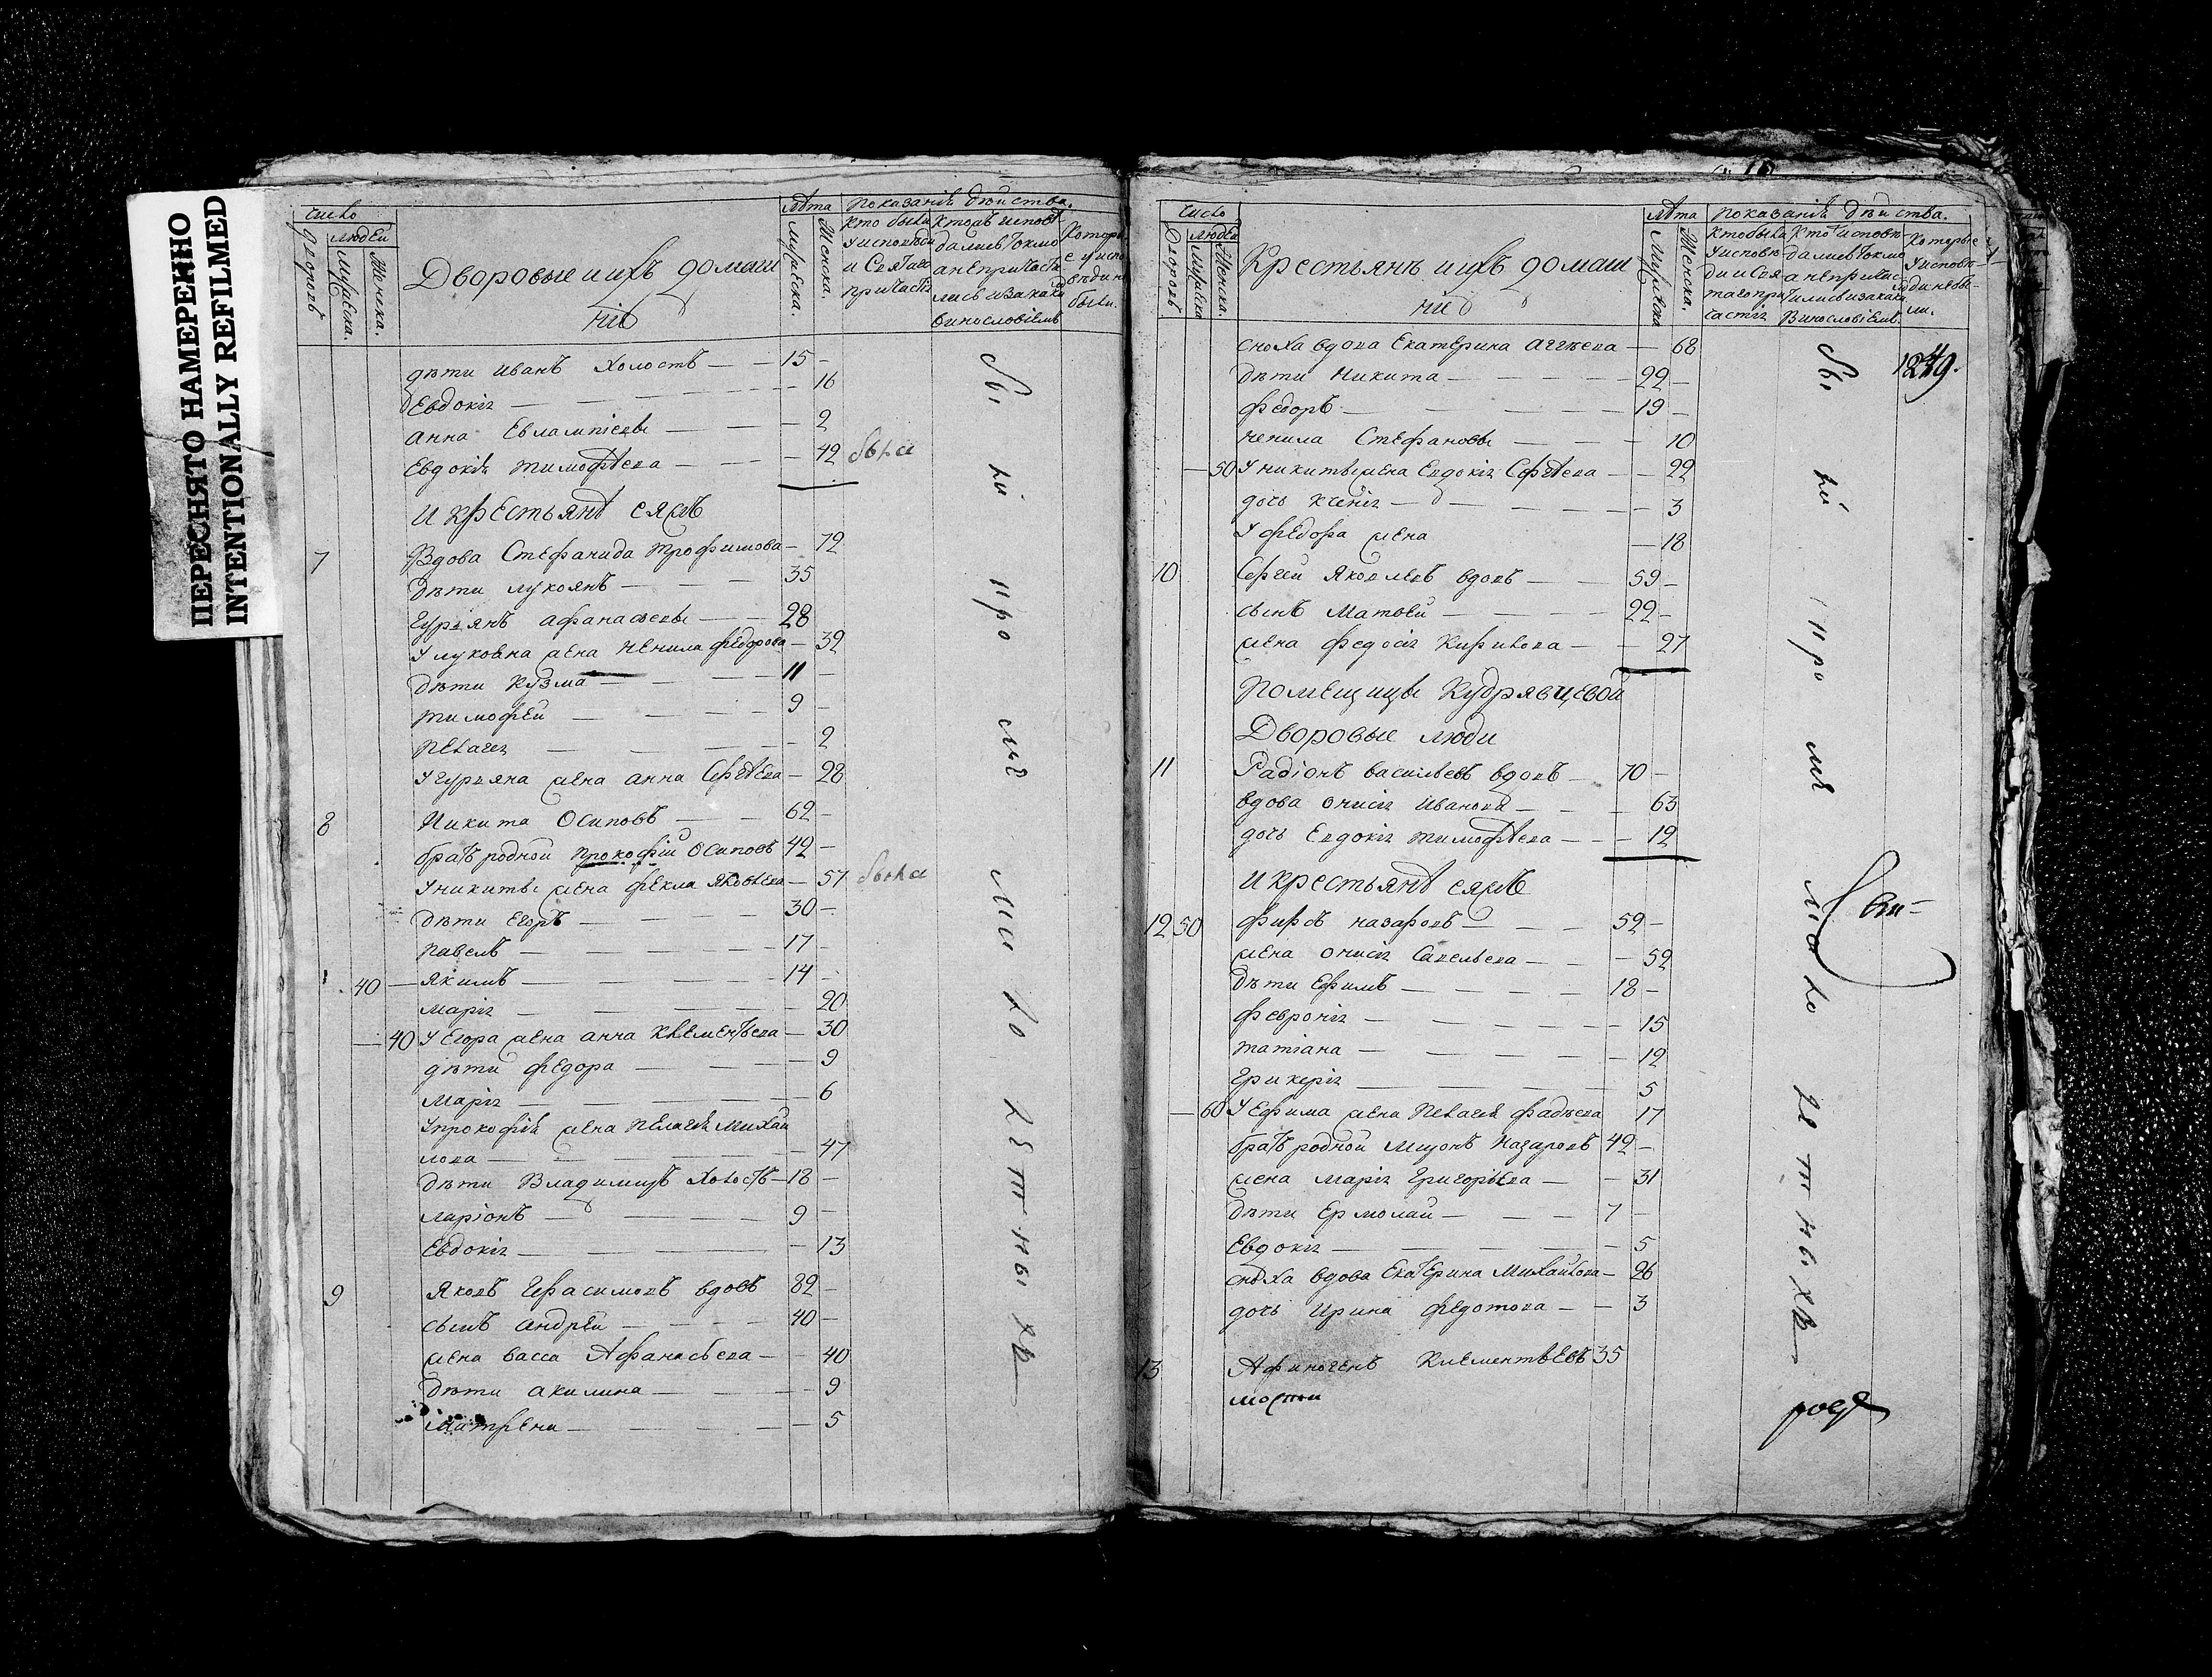 ПЕРЕСНЯТО НАМЕРЕННО
INTENTIONALLY REFILMED
число
дворовъ
людей
Мужеска.
Женска.
Дворовые и ихъ домаш
ніе
лѣта
Мужеска.
Женска.
показаніе действа.
кто были
у исповѣди
и Святаго
причастія
кто же исповѣ
дались токмо
а не причасти
лись и за каки
винословіемъ
которы
е у испо
вѣди не
были.
дѣти Иванъ холостъ — 15 —
Евдокія — 16
Анна Евлампіевы — 2
Евдокія Тимофѣева — 42 была
И крестьяне еяжъ
7 Вдова Стефанида Трофимова — 72
дѣти Лукоянъ — 35
Гурьянъ Афанасьевы — 28
У Лукояна жена Ненила Федорова — 32
дѣти Кузма — 11 —
Тимофей — 9 —
Пелагея — 2
У Гурьяна жена Анна Сергѣева — 28
8 Никита Осиповъ — 62 —
братъ родной Прокофій Осиповъ 42 —
У Никиты жена Фекла Яковлева — 57 была
дѣти Егоръ — 30 —
Павелъ — 17 —
40 — Якимъ — 14 —
Марія — 20
— 40 У Егора жена Анна Клементьева — 30
дѣти Федора — 9
Марія — 6
У Прокофія жена Пелагея Михай
лова — 47
дѣти Владимиръ холостъ — 18 —
Ларіонъ — 9 —
Евдокія — 13
9 Яковъ Герасимовъ вдовъ 82 —
сынъ Андрей — 40 —
жена Васса Афанасьева — 40
дѣти Акилина — 9
Матрена — 5
бы ли про
число
дворовъ
людей
Мужеска
Женска.
Крестьянъ и ихъ домаш
ніе
лѣта
Мужеска
Женска.
показаніе действа.
кто были
у исповѣ
ди и Свя
таго при
частія
кто исповѣ
дались токмо
а не причас
тились и за каки
винословіемъ.
которые
у исповѣ
ди не бы
ли.
сноха вдова Екатерина Аггѣева — 68
1249.
дѣти Никита — 22 —
Федоръ — 19 —
Ненила Стефановы — 10
— 50 У Никиты жена Евдокія Сергѣева — 22
дочь Ксенія — 3
У Федора жена — 18
10 Сергей Яковлевъ вдовъ — 59 —
сынъ Матвей — 22 —
жена Федосія Кирилова — 27
Помещицы Кудрявцевой
Дворовые люди
11 Радіонъ Васильевъ вдовъ — 70 —
вдова Онисія Иванова — 63
дочь Евдокія Тимофѣева — 12
И крестьяне еяжъ
12 50 Фирсъ Назаровъ — 52 —
жена Онисія Савельева — 52
дѣти Ефимъ — 18 —
Февронія — 15
Татіана — 12
Гликерія — 5
— 60 У Ефима жена Пелагея Фадѣева 17
братъ родной Миронъ Назаровъ 42 —
жена Марія Григорьева — 31
дѣти Ермолай — 7 —
Евдокія — 5
сноха вдова Екатерина Михайлова — 26
дочь Ирина Федотова — 3
13 Афиногенъ Клементьевъ 35